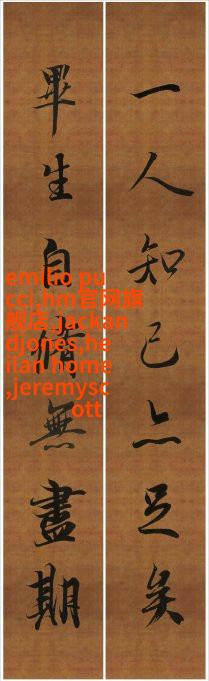 一人知己亦足矣
畢生自脩無盡期
emilio pu
cci,hm官网旗
舰店,jackan
djones,he
ilan home
,jeremysc
ott